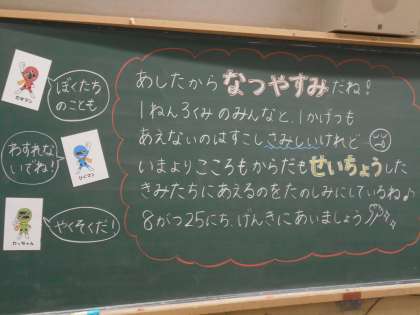 ぼくたち
のことも
わすれな
いでね！
やくそくだ！
あしたから なつやすみだね！
1ねん3くみのみんなと、1かげつも
あえないのはすこしさみしいけれど
いまより こころもからだも せいちょうした
きみたちにあえるのをたのしみにしているね♪
8がつ25にち、げんきにあいましょう